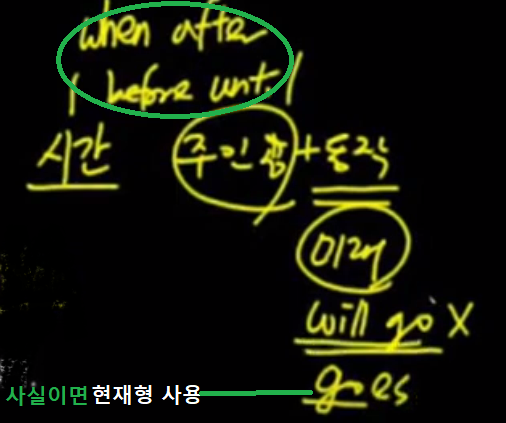 when after
before until
시간 주인공+동작
미래
will go X
goes
사실이면 현재형 사용